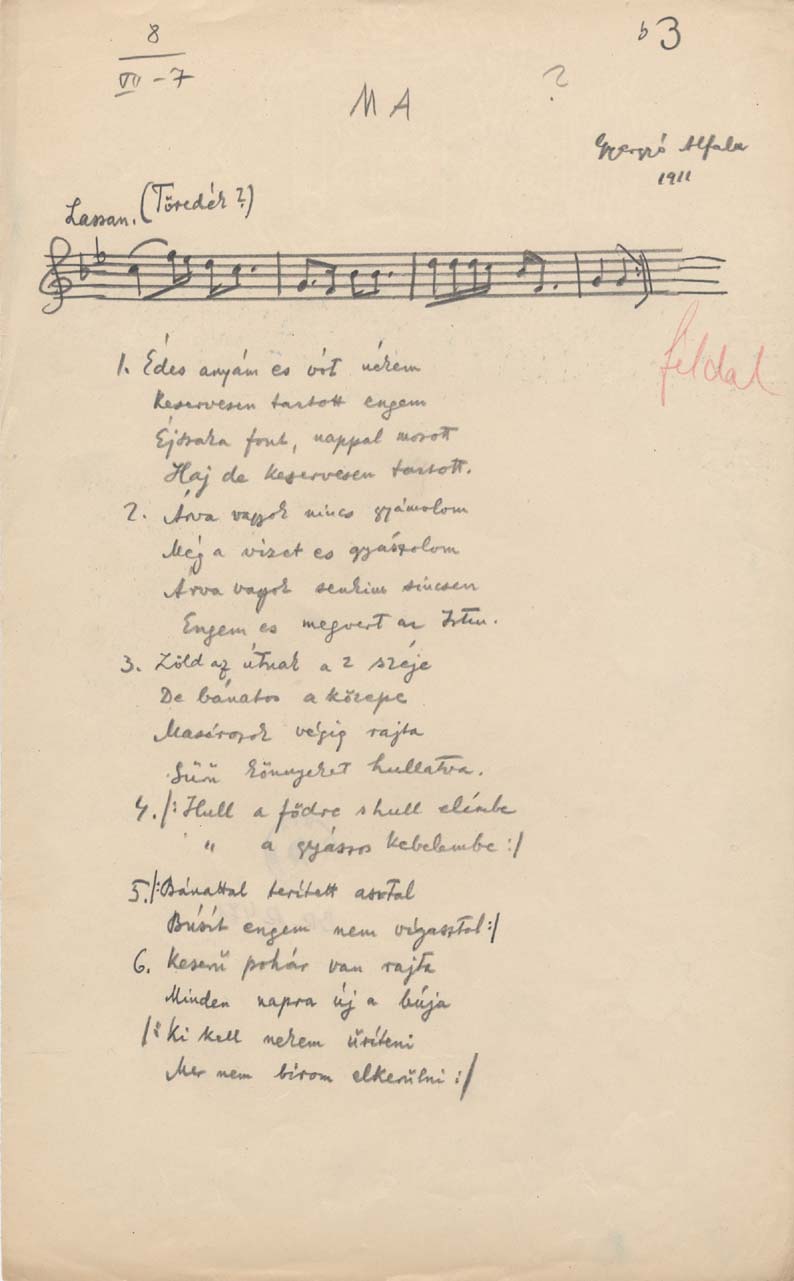 8
VII - 7
b3
MA
?
Gyergyó Alfalu
1911
Lassan. (Töredék?)
féldal
1. Édes anyám es vót nékem
Keservesen tartott engem
Éjtszaka font, nappal mosott
Haj de keservesen tartott.
2. Árva vagyok nincs gyámolom
Még a vizet es gyászolom
Árva vagyok senkim sincsen
Engem es megvert az Isten.
3. Zöld az útnak a 2 széje
De bánatos a közepe
Masérozok végig rajta
Sürü könnyeket hullatva.
4. /: Hull a fődre s hull elémbe
" a gyászos kebelembe :/
5. /: Bánattal terített asztal
Búsít engem nem vigasztal :/
6. Keserű pohár van rajta
Minden napra új a búja
/: Ki kell nekem üríteni
Mer nem birom elkerülni :/